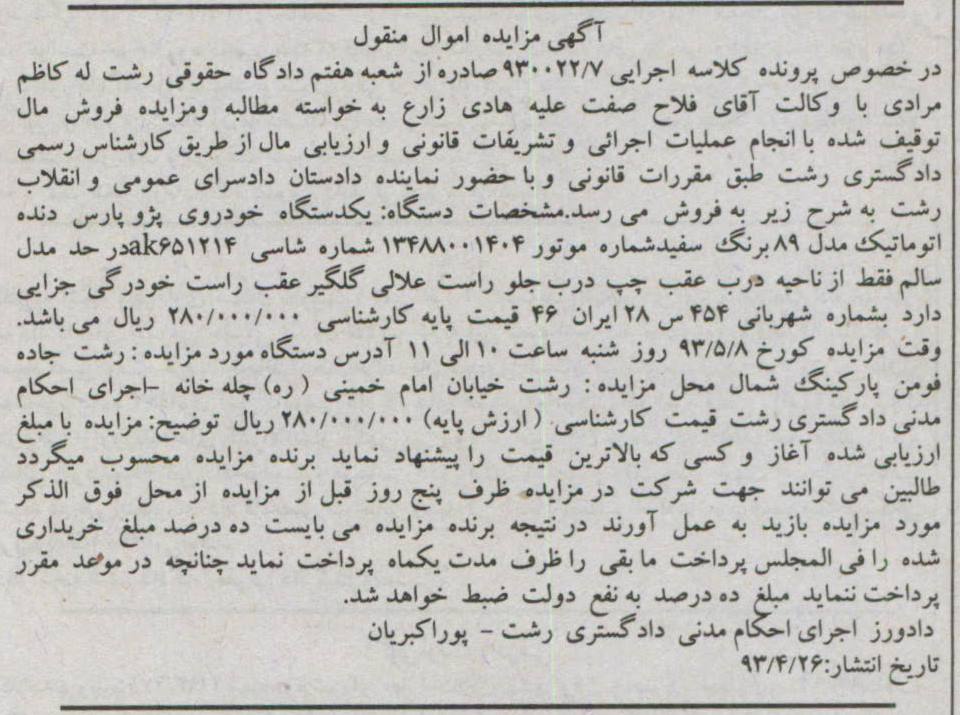 آگهی مزایده اموال منقول
در خصوص پرونده کلاسه اجرایی ۹۳۰۰۲۲/۷ صادره از شعبه هفتم دادگاه حقوقی رشت له کاظم
مرادی با وکالت آقای فلاح صفت علیه هادی زارع به خواسته مطالبه ومزایده فروش مال
توقیف شده با انجام عملیات اجرائی و تشریفات قانونی و ارزیابی مال از طریق کارشناس رسمی
دادگستری رشت طبق مقررات قانونی و با حضور نماینده دادستان دادسرای عمومی و انقلاب
رشت به شرح زیر به فروش می رسد.مشخصات دستگاه: یکدستگاه خودروی پژو پارس دنده
اتوماتیک مدل ۸۹ برنگ سفیدشماره موتور ۱۳۴۸۸۰۰۱۴۰۴ شماره شاسی ak۶۵۱۲۱۴در حد مدل
سالم فقط از ناحیه درب عقب چپ درب جلو راست علالی گلگیر عقب راست خودرگی جزایی
دارد بشماره شهربانی ۴۵۴ س ۲۸ ایران ۴۶ قیمت پایه کارشناسی ۲۸۰/۰۰۰/۰۰۰ ریال می باشد.
وقت مزایده کورخ ۹۳/۵/۸ روز شنبه ساعت ۱۰ الی ۱۱ آدرس دستگاه مورد مزایده : رشت جاده
فومن پارکینگ شمال محل مزایده : رشت خیابان امام خمینی (ره) چله خانه -اجرای احکام
مدنی دادگستری رشت قیمت کارشناسی (ارزش پایه) ۲۸۰/۰۰۰/۰۰۰ ریال توضیح: مزایده با مبلغ
ارزیابی شده آغاز و کسی که بالاترین قیمت را پیشنهاد نماید برنده مزایده محسوب میگردد
طالبین می توانند جهت شرکت در مزایده ظرف پنج روز قبل از مزایده از محل فوق الذکر
مورد مزایده بازید به عمل آورند در نتیجه برنده مزایده می بایست ده درصد مبلغ خریداری
شده را فی المجلس پرداخت ما بقی را ظرف مدت یکماه پرداخت نماید جنانچه در موعد مقرر
پرداخت ننماید مبلغ ده درصد به نفع دولت ضبط خواهد شد.
دادورز اجرای احکام مدنی دادگستری رشت - پوراکبریان
تاریخ انتشار:۹۳/۴/۲۶